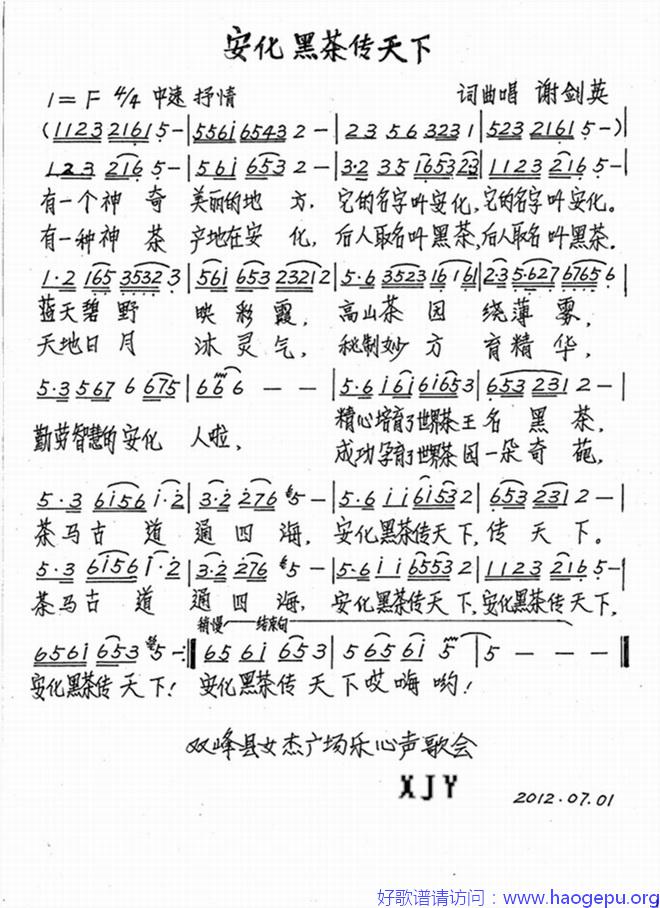 安化黑茶传天下
1=F 4/4 中速 抒情 词曲唱 谢剑英
(1123 2161 5-|5561 6543 2-|23 56 323 1|523 2161 5-)|
123 216 5-|561 653 2-|3·2 35 1653 23|1123 216 5-|
有一个神奇 美丽的地方, 它的名字叫安化,它的名字叫安化。
有一种神茶 产地在安化, 后人取名叫黑茶,后人取名叫黑茶.
1·2 165 3532 3|561 653 23212|5·6 3523 16 161|2·3 5·627 6765 6|
蓝天碧野 映彩霞, 高山茶园 绕薄雾,
天地日月 沐灵气, 秘制妙方 育精华,
5·3 567 6 675|66 6 - -|5·6 161 61653|653 231 2-|
勤劳智慧的安化 人啦, 精心培育了世界茶王名黑茶,
成功孕育了世界茶园一朵奇葩,
5·3 6156 1·2|3·2 276 5-|5·6 11 616532|653 231 2-|
茶马古道通四海, 安化黑茶传天下,传天下。
5·3 6156 1·2|3·2 276 5-|5·6 11 616553 2|1123 216 5-|
茶马古道 通四海, 安化黑茶传天下,安化黑茶传天下,
稍慢 结束句
6561 653 5-:‖65 61 653|5 6561 5|5 - - -‖
安化黑茶传天下! 安化黑茶传天下哎嗨哟!
双峰县女杰广场乐心声歌会
XJY
2012.07.01
好歌谱请访问：www.haogepu.org